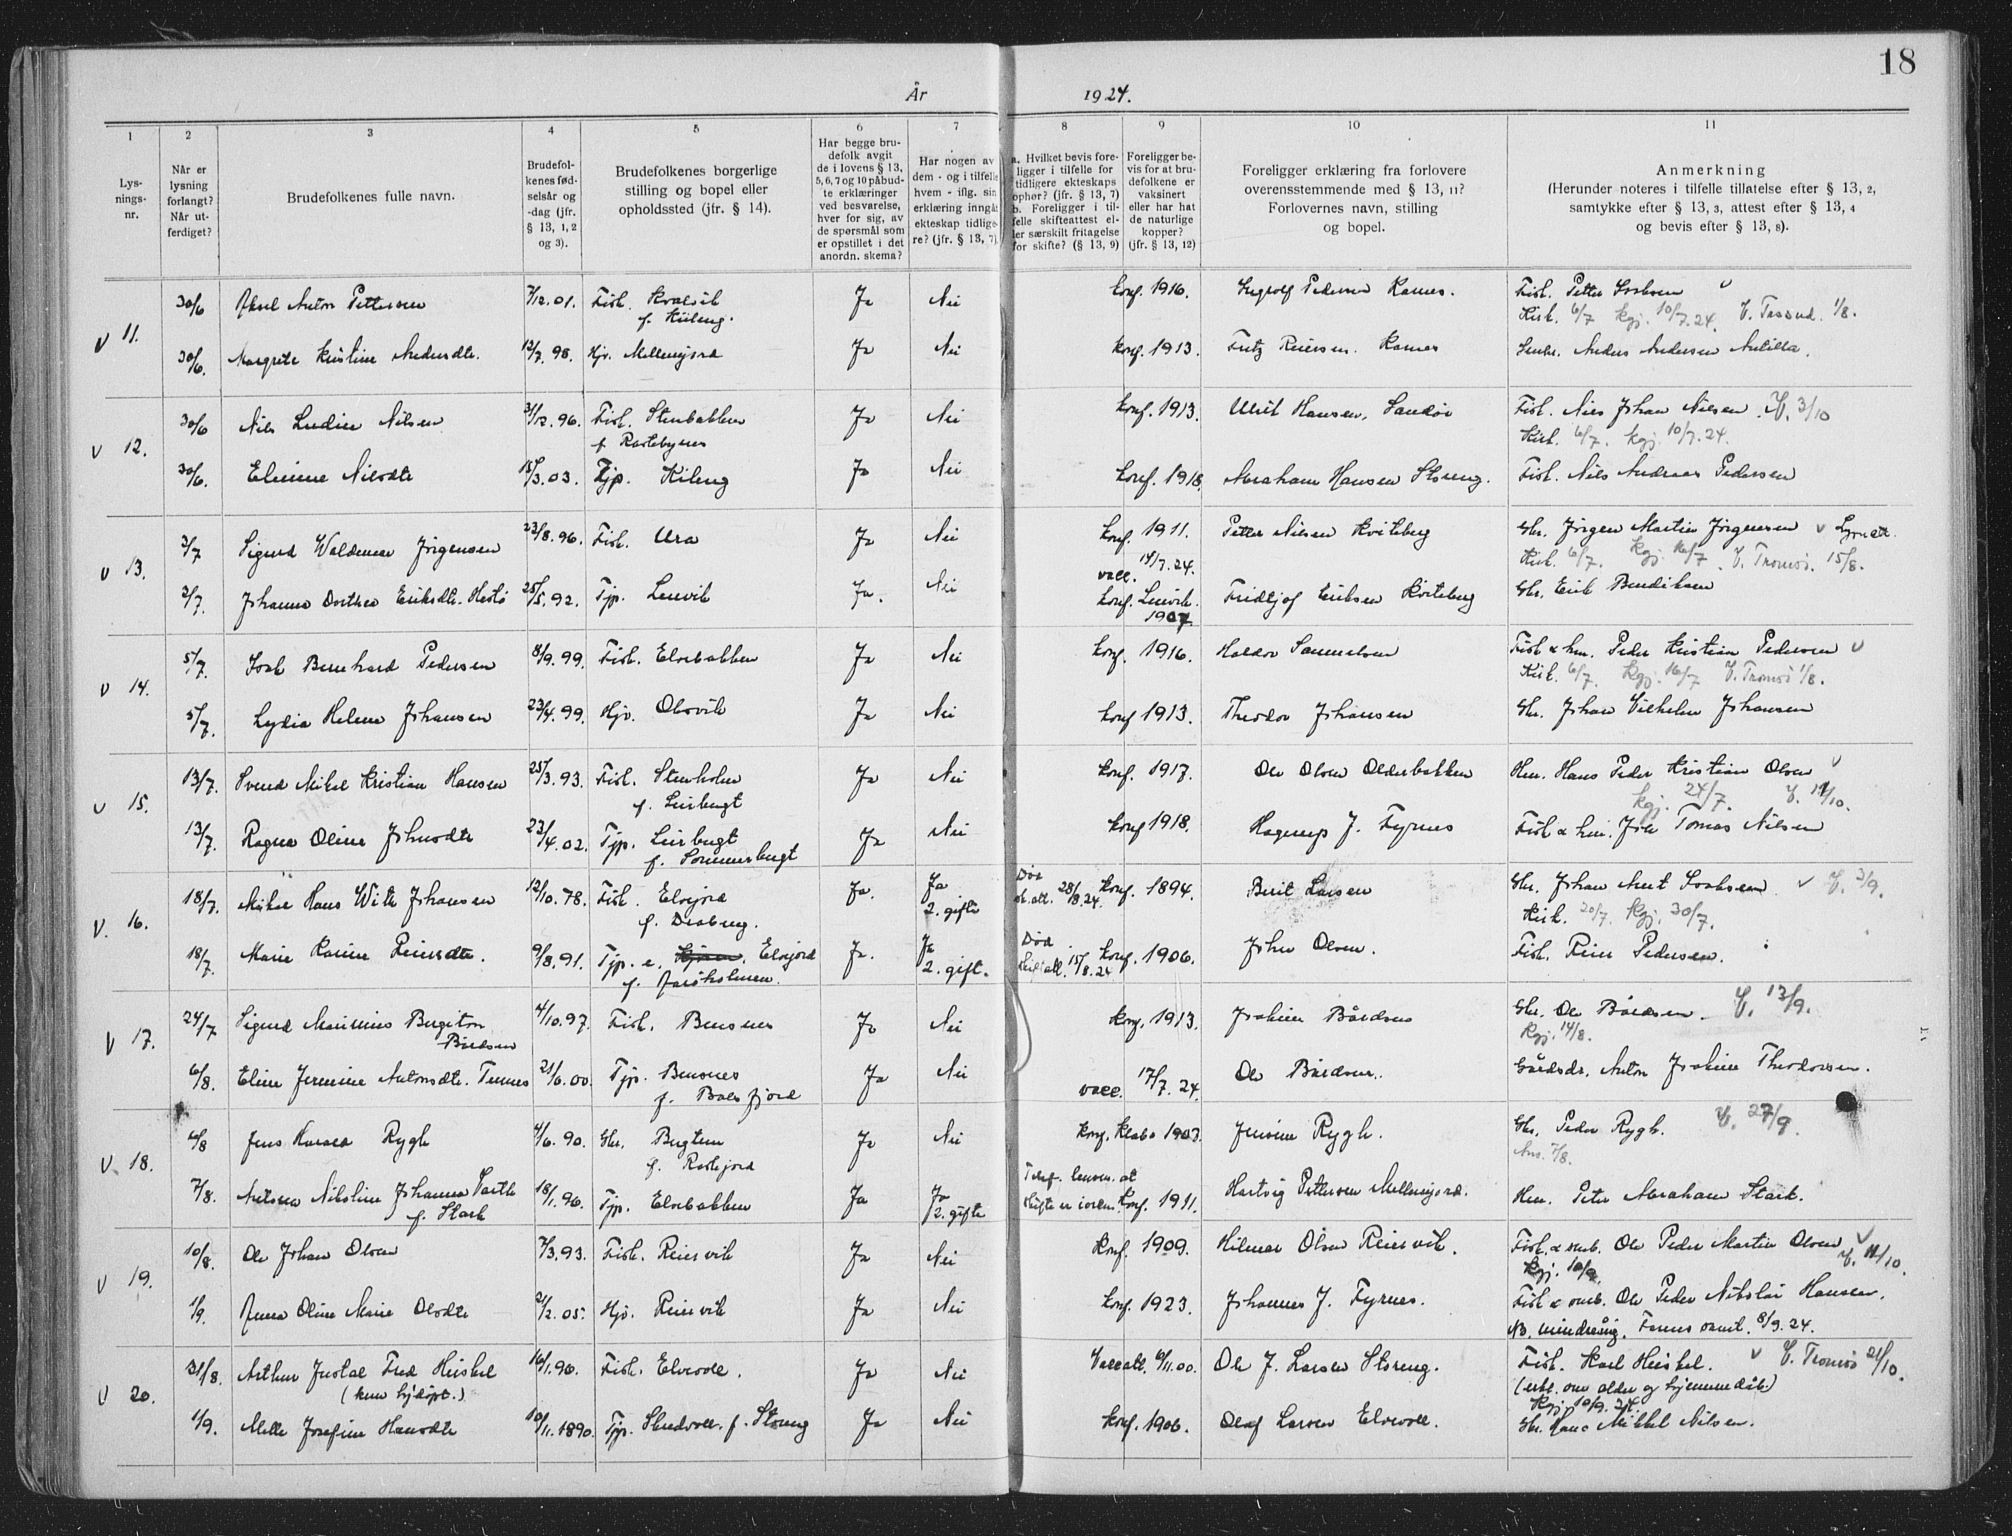 18
År 1924.
1 2 3 4 5 6 7 8 9 10 11
Lys-
nings-
nr.
Når er
lysning
forlangt?
Når ut-
ferdiget?
Brudefolkenes fulle navn.
Brudefol-
kenes fød-
selsår og
-dag (jfr.
§ 13, 1, 2
og 3).
Brudefolkenes borgerlige
stilling og bopel eller
opholdssted (jfr. § 14).
Har begge bru-
defolk avgit
de i lovens § 13,
5, 6, 7 og 10 påbud-
te erklæringer
ved besvarelse,
hver for sig, av
de spørsmål som
er opstillet i det
anordn. skema?
Har nogen av
dem - og i tilfelle
hvem - iflg. sin
erklæring inngåt
ekteskap tidlige-
re? (jfr. § 13, 7).
a. Hvilket bevis fore-
ligger i tilfelle for
tidligere ekteskaps
ophør? (jfr. § 13, 7)
b. Foreligger i til-
felle skifteattest el-
ler særskilt fritagelse
for skifte? (§ 13, 9)
Foreligger be-
vis for at bru-
defolkene er
vaksinert
eller har hat
de naturlige
kopper?
(jfr. § 13, 12)
Foreligger erklæring fra forlovere
overensstemmende med § 13, 11?
Forlovernes navn, stilling
og bopel.
Anmerkning
(Herunder noteres i tilfelle tillatelse efter § 13, 2,
samtykke efter § 13, 3, attest efter § 13, 4
og bevis efter § 13, 8).
v 11.
30/6 Anton Pettersen 7/12.01. Fisk. Kvalvik Ja Nei konf. 1916. Pedersen Ramnes. Fisk. Petter
Kirk. 6/7 kgj. 10/7.24. 1/8.
30/6. Margrete Kristine Andersdtr. 12/7.98. Hjv. Mellemjord Ja Nei konf. 1913. Fritz Reiersen. Anders Andersen
v 12.
30/6 Nils Ludier Nilsen 31/12.96. Fisk. Stenbakken Ja Nei konf. 1913. Hansen, Sandøi Fisk. Nils Johan Nilsen. V. 3/10
Kirk. 6/7. kgj. 10/7.24.
30/6. Nilsdtr 15/3.03. Tjp. Kileng Ja Nei konf. 1918. Abraham Hansen Storeng. Fisk. Nils Andreas Pedersen
v 13.
2/7 Sigurd Waldemar Jørgensen 23/8.96. Fisk. Ura Ja Nei konf. 1911. Petter Nilsen Kviteberg Gbr. Jørgen Martin Jørgensen v
vacc. 14/7.24. Kirk. 6/7. kgj. 16/7. V. Tromsø. 15/8.
2/7. Johanna Dorthea Eriksdtr. 25/5.92. Tjp. Lenvik Ja. Nei konf. Lenvik. 1907 Fridtjof Eriksen Kviteberg Gbr. Erik Bendiksen
v 14.
5/7. Isak Bernhard Pedersen 8/9.99. Fisk. Elvebakken Ja Nei konf. 1916. Haldor Samuelsen Fisk & hm. Peder Kristian Pedersen v
Kirk. 6/7. kgj. 16/7 V. Tromsø 1/8.
5/7. Lydia Helene Johansen 23/4.99. Hjv. Olsvik Ja Nei konf. 1913. Theodor Johansen Gbr. Johan Vilhelm Johansen
v 15.
13/7. Svend Mikal Kristian Hansen 25/3.93. Fisk. Stenholm Ja Nei konf. 1917. Ole Olsen Olderbakken Hm. Hans Peder Kristian Olsen v
f. Leirbugt kgj. 24/7.
13/7. Ragna Oline Johnsdtr 23/4.02. Tjp. Leirbugt Ja Nei konf 1918. Hagerup J. Fyrnes Fisk & hm. Tomas Nilsen
f. Sommerbugt
v. 16.
18/7. Mikal Hans Johansen 12/10.78. Fisk. Elvejord Ja. Ja
2. gifte Død 28/8.24. konf. 1894. Berit Larsen Gbr. Johan v V. 3/9.
Kirk. 20/7. kgj. 30/7.
18/7. Marie Karine Reiersdtr. 9/8.91. Tjp. e. Elvejord Ja. Ja
2. gift. Død 15/8.24 konf. 1906. John Olsen. Fisk. Reier Pedersen.
v 17.
24/7 Sigurd Maurines Bergiton Bårdsen 4/10.97. Fisk. Bensnes Ja Nei konf. 1913. Joakim Bårdsen Gbr. Ole Bårdsen. V. 13/9.
Kgj. 14/8.
6/8. Eline Jermine Antonsdtr. Tennes 21/6.00. Tjp. Bensnes Ja Nei vacc. 17/7.24. Ole Bårdsen. Gårdsbr. Anton Joakim Theodorsen.
f. Balsfjord
v 18.
6/8 Jens Rygh 4/6.90. Gbr. Bergtun Ja Nei konf. 1903. Jensine Rygh. Gbr. Peder Rygh. V. 27/9.
7/8.
7/8. Nikoline Johanna 18/1.96. Tjp. Elvebakken Ja Ja
2. gifte konf. 1911. Hartvig Pettersen Mellemjord. Hm. Peter Abraham Stark.
f. Stark
v 19.
10/8. Ole Johan Olsen 7/3.93. Fisk. Reiersvik Ja Nei konf. 1909. Hilmar Olsen Reiersvik. Fisk. & smb. Ole Peder Martin Olsen v
kgj. 10/9.
1/9. Anna Oline Marie Olsdtr 21/2.05. Hjv. Reiersvik Ja Nei konf. 1923. Johannes J. Fyrnes. Fisk & smb. Ole Peder Nikolai Hansen.
NB. mindreårig. Farens samt. 8/9.24.
v 20.
31/8. Arthur Fred Heiskel 16/1.90. Fisk. Elvevoll. Ja Nei Vaccatt. 6/11.00. Ole J. Larsen Storeng. Fisk. Karl Heiskel. v V. Tromsø 21/10.
(kun hjdøpt.) (erkl. om alder og hjemmedåb.)
kgj. 10/9.24.
1/9. Josefine Hansdtr 10/11.1890. Tjp. f. Storeng Ja Nei konf. 1906. Olaf Larsen Elvevoll. Gbr. Hans Mikkel Nilsen.